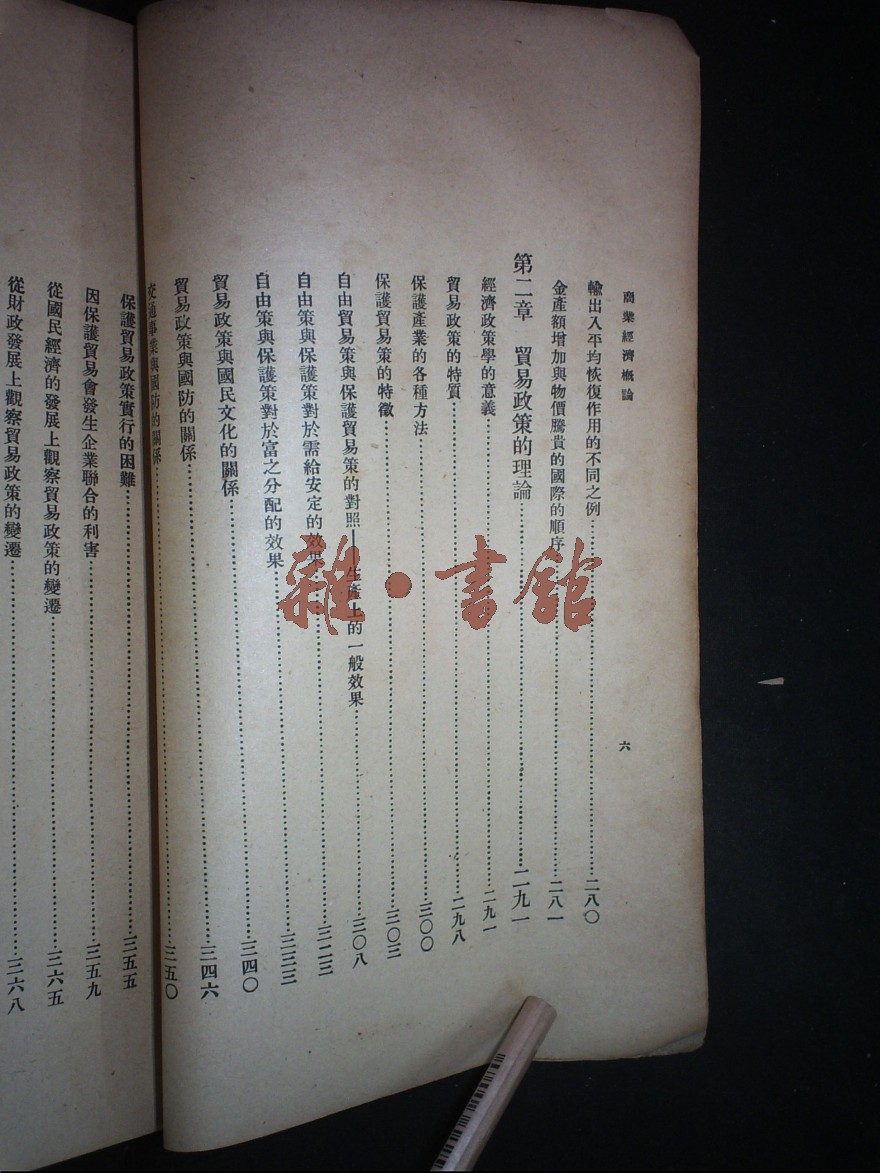 商業經濟概論
六
輸出入平均恢復作用的不同之例……二八〇
金產額增加與物價騰貴的國際的順序……二八一
第二章 貿易政策的理論……二九一
經濟政策學的意義……二九一
貿易政策的特質……二九八
保護產業的各種方法……三〇〇
保護貿易策的特徵……三〇三
自由貿易策與保護貿易策的對照——生產上的一般效果……三〇八
自由策與保護策對於需給安定的效果……三二三
自由策與保護策對於富之分配的效果……三三三
貿易政策與國民文化的關係……三四〇
貿易政策與國防的關係……三四六
交通事業與國防的關係……三五〇
保護貿易政策實行的困難……三五五
因保護貿易會發生企業聯合的利害……三五九
從國民經濟的發展上觀察貿易政策的變遷……三六五
從財政發展上觀察貿易政策的變遷……三六八
雜·書館